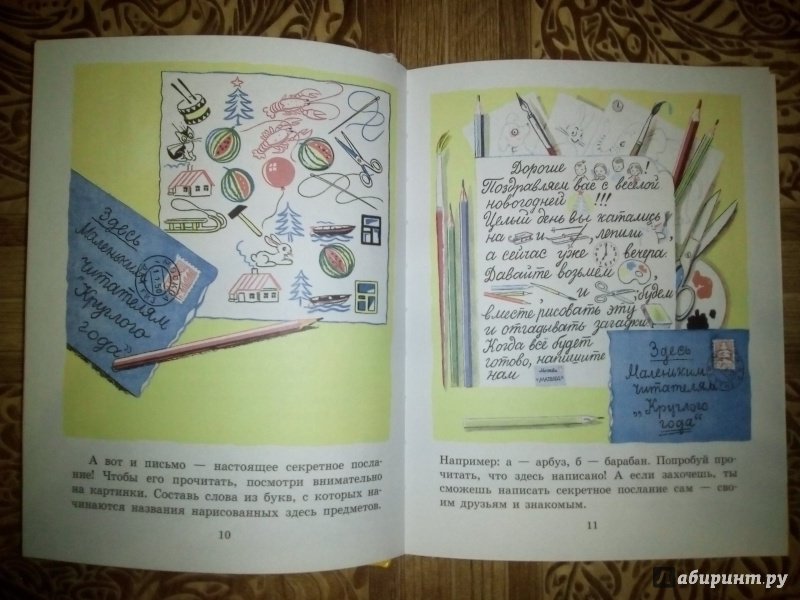 Здесь
Маленьким
читателям
„Круглого
года“
А вот и письмо — настоящее секретное посла-
ние! Чтобы его прочитать, посмотри внимательно
на картинки. Составь слова из букв, с которых на-
чинаются названия нарисованных здесь предметов.
10
Дорогие !
Поздравляем вас с весёлой
новогодней !!!
Целый день вы катались
на и , лепили ,
а сейчас уже вечера.
Давайте возьмём ,
, и , будем
вместе рисовать эту
и отгадывать загадки.
Когда всё будет
готово, напишите
нам
Здесь
Маленьким
читателям
„Круглого
года“
Например: а — арбуз, б — барабан. Попробуй про-
читать, что здесь написано! А если захочешь, ты
сможешь написать секретное послание сам — сво-
им друзьям и знакомым.
11
Лабиринт.ру